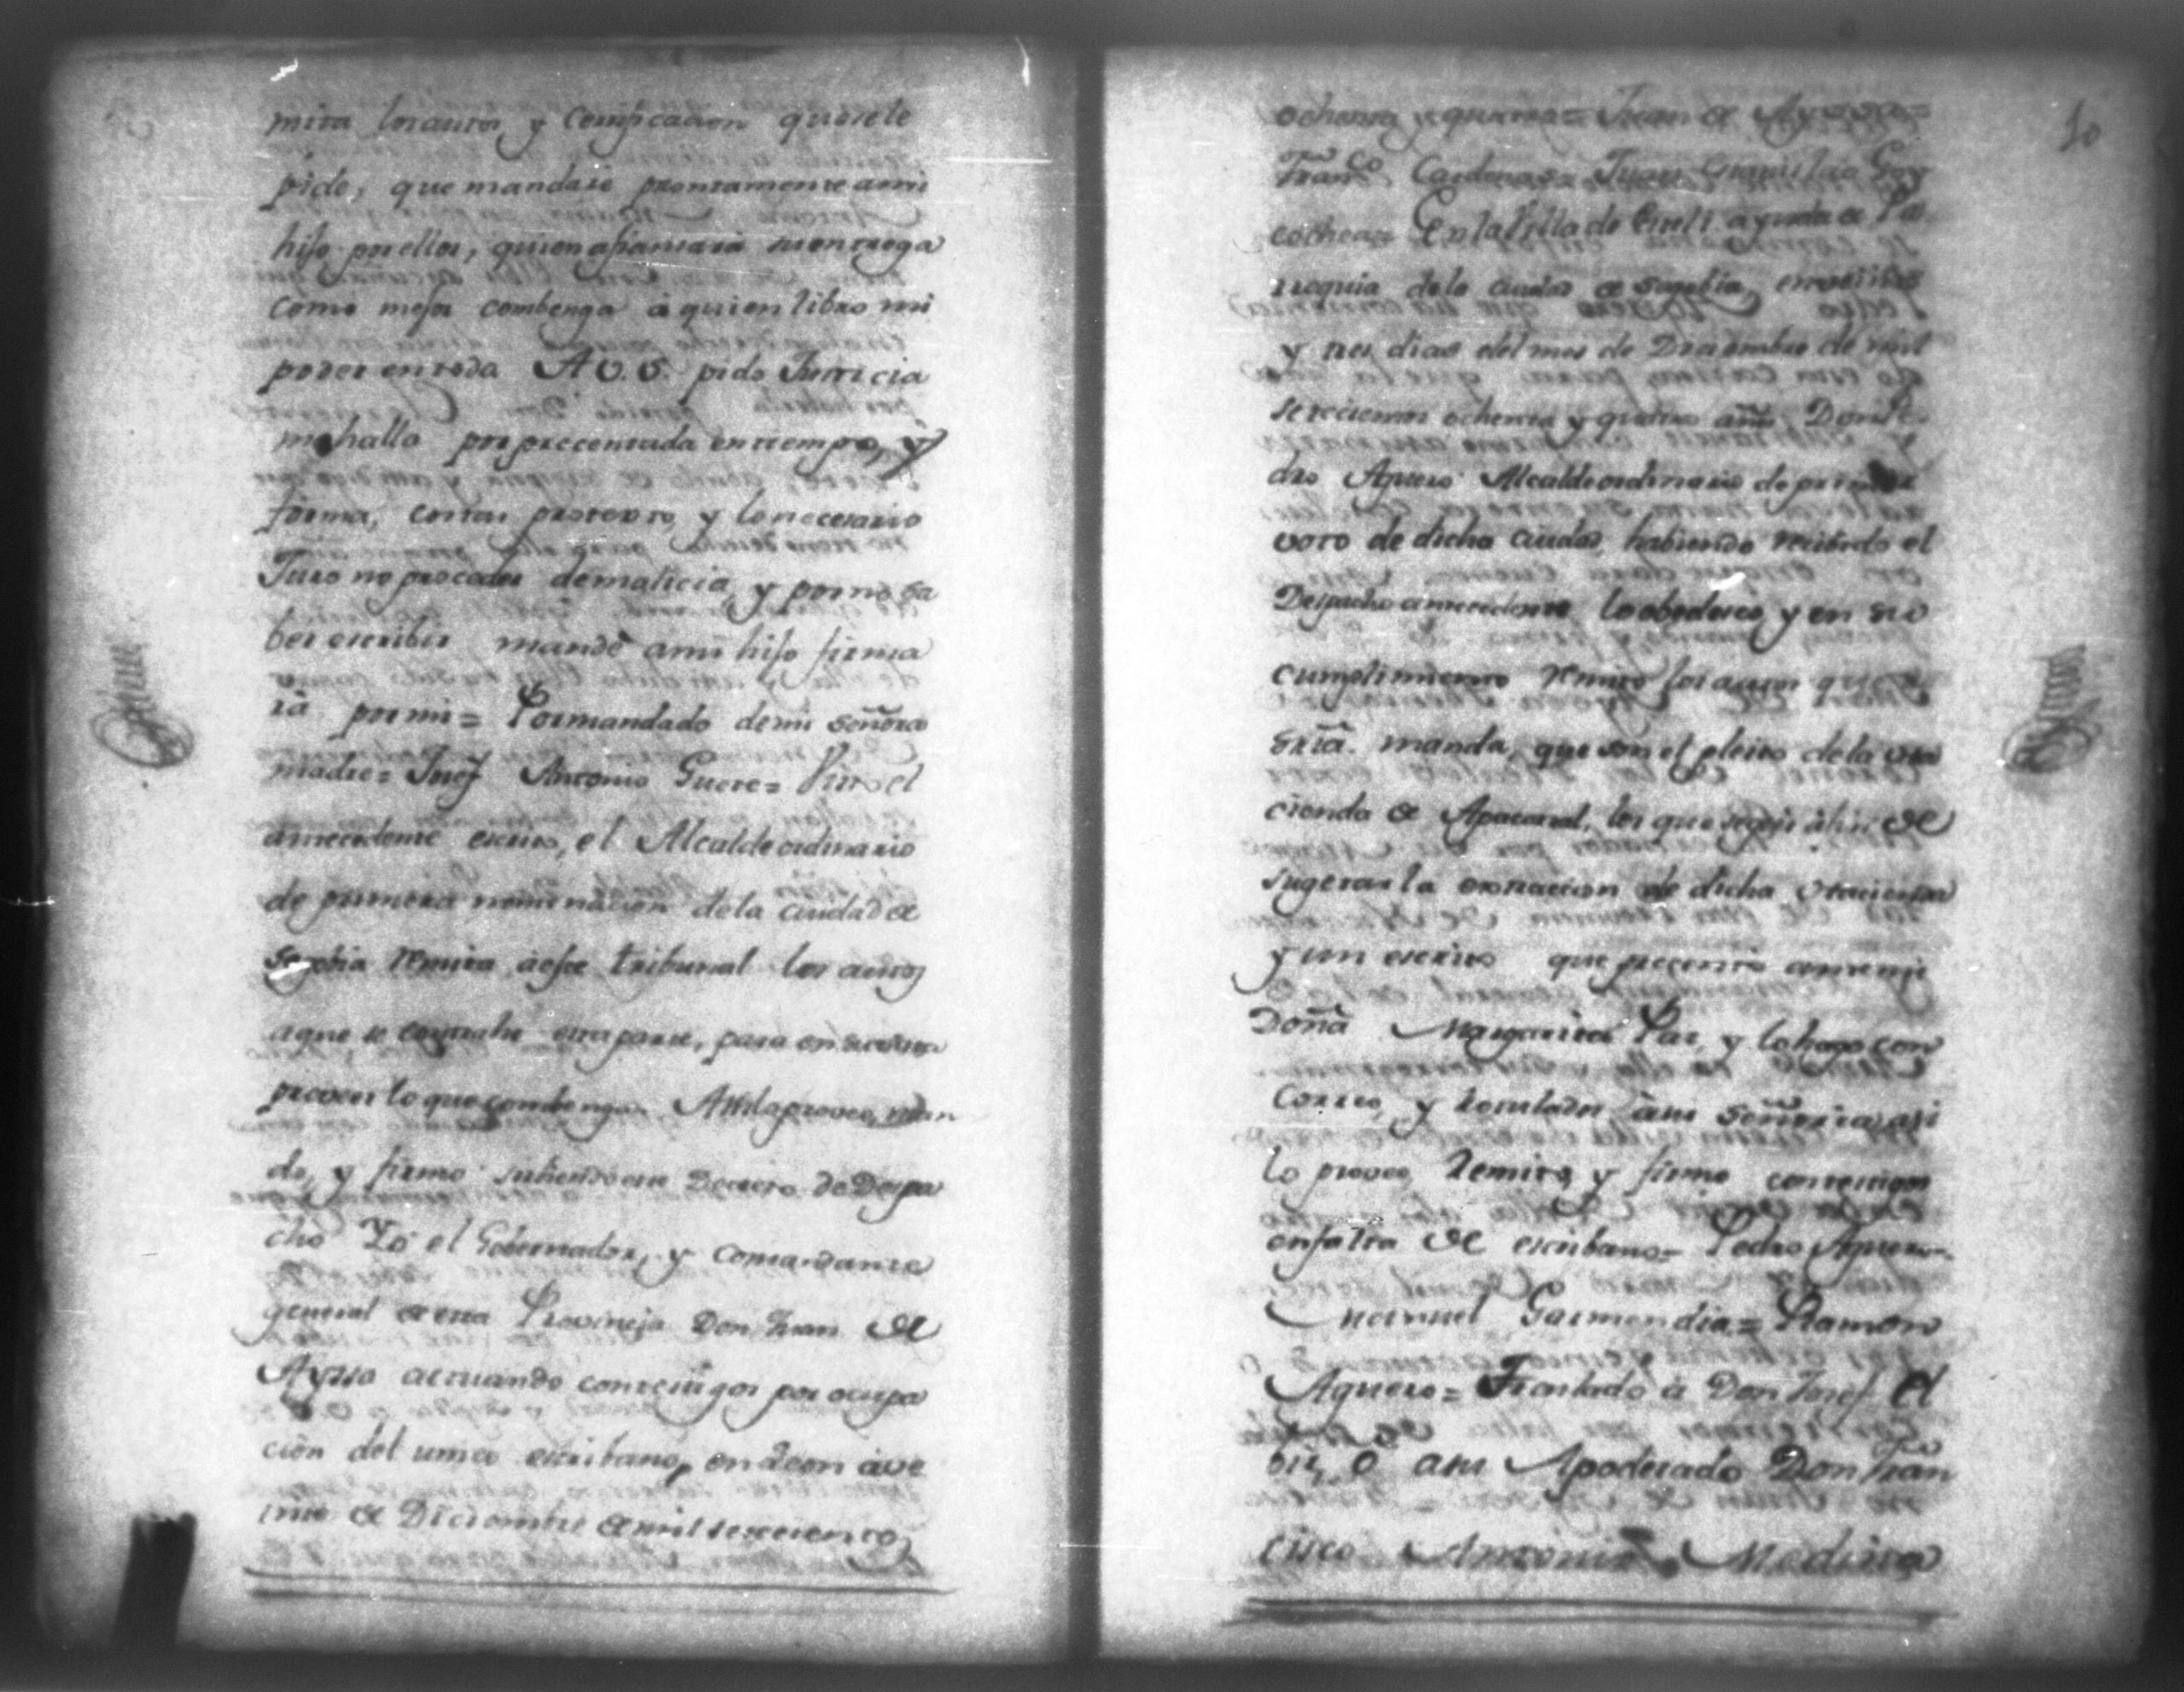 mita los autos y Certificacion que se le
pide, que mandaré prontamente a mi
hijo por ellos, quien afiansará su entrega
como mejor combenga á quien libro mi
poder en toda A V.S. pido Justicia
me hallo por precentada en tiempo, y
forma, costas protexto, y lo necesario
Juro no proceder de malicia, y por no sa
ber escribir mandé a mi hijo firma
rá por mi = Por mandado de mi señora
madre = Josef Antonio Guere = Por el
antecedente escrito, el Alcalde ordinario
de primera nominacion de la ciudad de
Segobia remita á este tribunal los autos
a que se contrahe esta parte, para en su vista
proveer lo que combenga. Asi lo proveo, man
do, y firmo sirbiendo este Decreto de Despa
cho Yo el Gobernador, y Comandante
general de esta Provincia Don Juan de
Aysa actuando con testigos por ocupa
ción del unico escribano, en Leon á ve
inte de Diciembre de mil setecientos
10
ochenta y quatro = Juan de Aysa =
Franco. Cardenas = Juan Goy
cochea = En la Villa de Esteli ayuda de Pa
rroquia de la ciudad de Segobia, en veinte
y tres dias del mes de Diciembre de mil
setecientos ochenta y quatro años Don Pe
dro Aguero Alcalde ordinario de primer
voto de dicha ciudad, habiendo recibido el
Despacho antecedente lo obedesco y en su
cumplimiento remito los autos que su
sria. manda, que son el pleito de la Ha
cienda de Apacaral, los que segui á fin de
sugetar la donacion de dicha Hacienda
y un escrito que precentó ante mi
Doña Margarita Paz, y lo hago con
Correo, y rotulados á su señoria asi
lo proveo remito, y firmo con testigos
en falta de escribano = Pedro Aguero =
Manuel Garmendia = Ramon
Aguero = Traslado á Don Josef El
biz, ó á su Apoderado Don Fran
cisco Antonio Medina